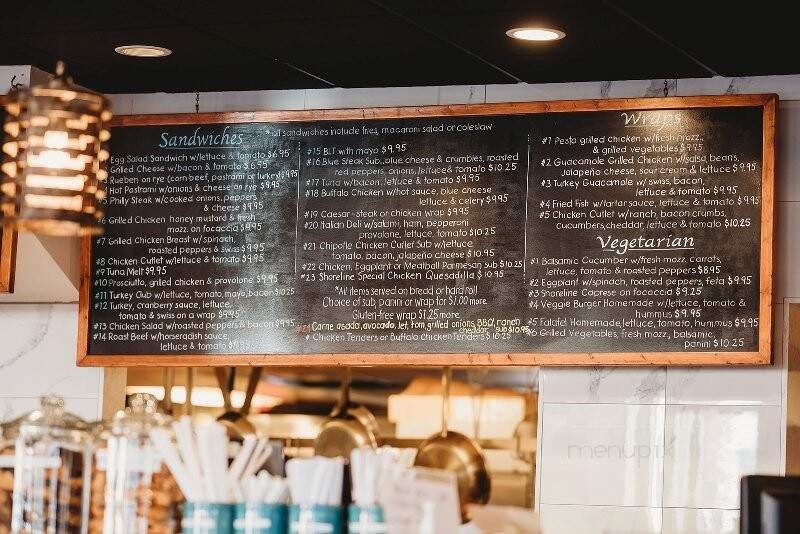 Sandwiches
all sandwiches include fries, macaroni salad or coleslaw
Egg Salad Sandwich w/lettuce & tomato $6.95
Grilled Cheese w/bacon & tomato $6.95
Rueben on rye (corn beef, pastrami or turkey) $9.95
Hot Pastrami w/onions & cheese on rye $9.95
Philly Steak w/cooked onions, peppers
& cheese $9.95
#6 Grilled Chicken honey mustard & fresh
mozz. on focaccia $9.95
#7 Grilled Chicken Breast w/spinach,
roasted peppers & swiss $9.95
#8 Chicken Cutlet w/lettuce & tomato $9.95
#9 Tuna Melt $9.95
#10 Prosciutto, grilled chicken & provolone $9.95
#11 Turkey Club w/lettuce, tomato, mayo, bacon $10.25
#12 Turkey, cranberry sauce, lettuce,
tomato & swiss on a wrap $9.95
#13 Chicken Salad w/roasted peppers & bacon $9.95
#14 Roast Beef w/horseradish sauce,
lettuce & tomato
#15 BLT with mayo $9.95
#16 Blue Steak Sub, blue cheese & crumbles, roasted
red peppers, onions, lettuce & tomato $10.25
#17 Tuna w/bacon, lettuce & tomato $9.95
#18 Buffalo Chicken w/hot sauce, blue cheese
lettuce & celery $9.95
#19 Caesar - steak or chicken wrap $9.95
#20 Italian Deli w/salami, ham, pepperoni
provolone, lettuce, tomato $10.25
#21 Chipotle Chicken Cutlet Sub w/lettuce
tomato, bacon, jalapeño cheese $10.95
#22 Chicken, Eggplant or Meatball Parmesan sub $10.25
#23 Shoreline Special Chicken Quesadilla $10.95
*All items served on bread or hard roll
Choice of sub, panini or wrap for $1.00 more
Gluten-free wrap $1.25 more
Carne asada, avocado, let, tom, grilled onions, BBQ, ranch
cheddar, sub $10.95
# Chicken Tenders or Buffalo Chicken Tenders $10.25
Wraps
#1 Pesto grilled Chicken w/fresh mozz.,
& grilled vegetables $9.95
#2 Guacamole Grilled Chicken w/salsa, beans,
Jalapeño cheese, sour cream & lettuce $9.95
#3 Turkey Guacamole w/ swiss, bacon,
lettuce & tomato $9.95
#4 Fried Fish w/tartar sauce, lettuce & tomato $9.95
#5 Chicken Cutlet w/ranch, bacon crumbs,
cucumbers, cheddar, lettuce & tomato $10.25
Vegetarian
#1 Balsamic Cucumber w/fresh mozz, carrots,
lettuce, tomato & roasted peppers $8.95
#2 Eggplant w/spinach, roasted peppers, feta $9.95
#3 Shoreline Caprese on focaccia $9.25
#4 Veggie Burger Homemade w/lettuce, tomato &
hummus $9.95
#5 Falafel Homemade, lettuce, tomato, hummus $9.95
#6 Grilled Vegetables, fresh mozz, balsamic,
panini $10.25
menupix